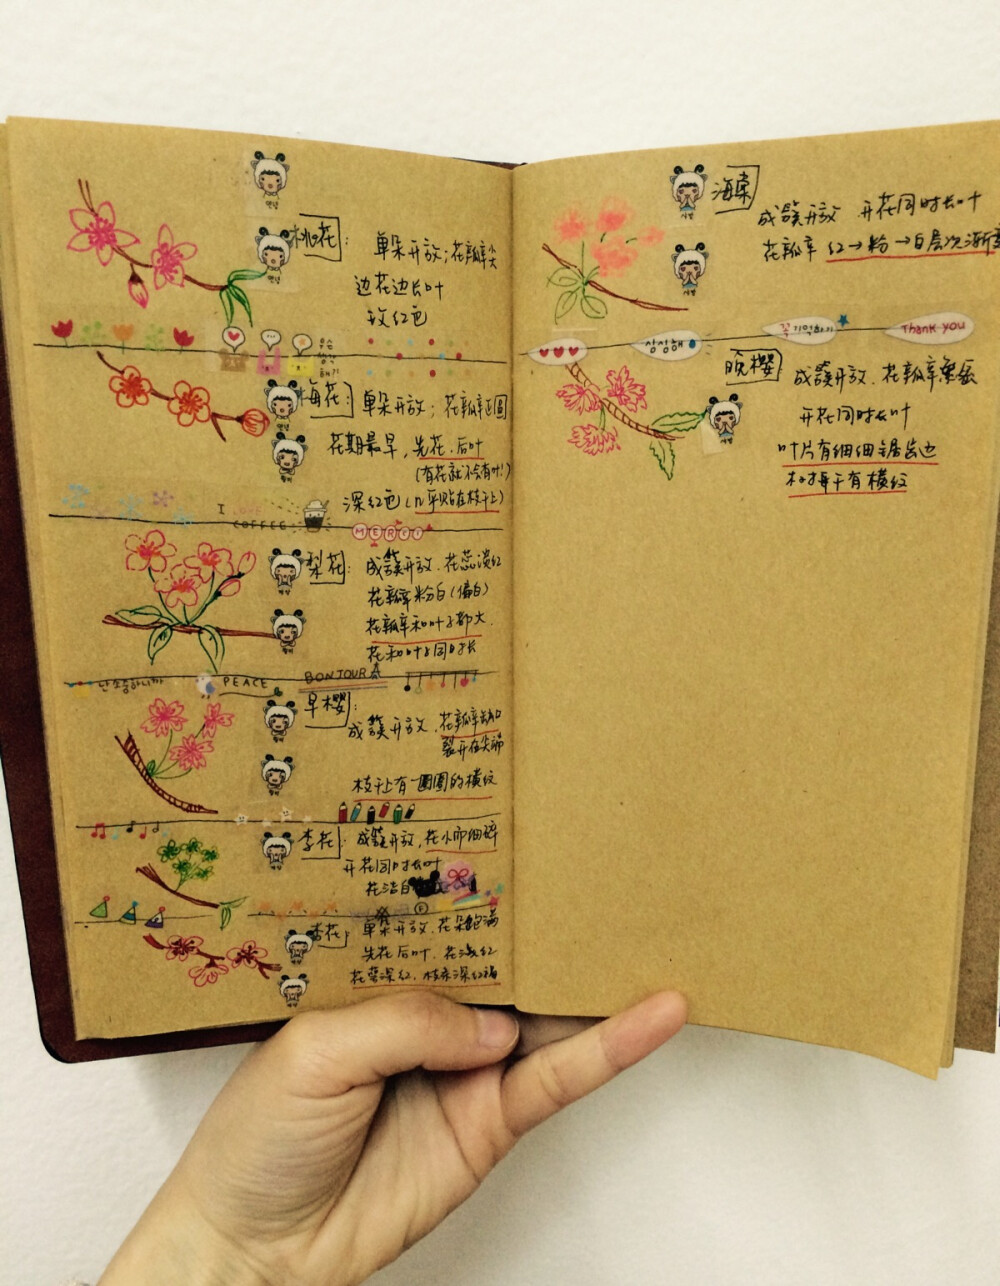 桃花:
单朵开放;花瓣尖
边花边长叶
玫红色
梅花:
单朵开放;花瓣近圆
花期最早,先花.后叶
(有花就不会有叶!)
深红色(几乎贴在枝干上)
I LOVE
COFFEE
MERCI
梨花:
成簇开放.花蕊淡红
花瓣粉白(偏白)
花瓣和叶子都大.
花和叶子同时长
PEACE
BONJOUR
早樱:
成簇开放.花瓣缺口
裂开在尖端
枝干上有一圈圈的横纹
李花:
成簇开放,花小而细碎
开花同时长叶
花洁白
杏花:
单朵开放.花朵饱满
先花后叶.花浅红
花萼深红.枝条深红褐
海棠
成簇开放 开花同时长叶
花瓣 红→粉→白层次渐变
상상해
꼭 기억하기
Thank you
晚樱
成簇开放.花瓣重叠
开花同时长叶
叶片有细细锯齿边
树干有横纹